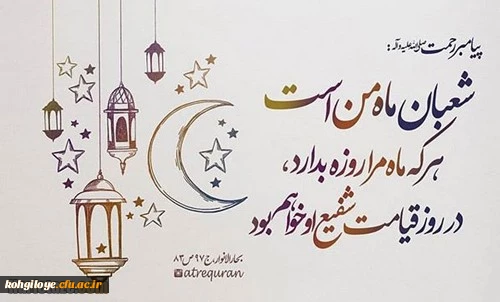 پیامبر رحمت صلی الله علیه و آله :
شعبان ماه من است
هر که ماه مرا روزه بدارد،
در روز قیامت شفیع او خواهم بود
بحارالانوار، ج ۹۷ ص ۸۳
@atrequran
kohgiloye.cfu.ac.ir